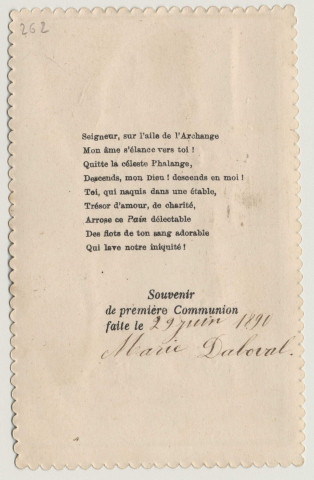 262
Seigneur, sur l'aile de l'Archange
Mon âme s'élance vers toi !
Quitte la céleste Phalange,
Descends, mon Dieu ! descends en moi !
Toi, qui naquis dans une étable,
Trésor d'amour, de charité,
Arrose ce Pain délectable
Des flots de ton sang adorable
Qui lave notre iniquité !
Souvenir
de première Communion
faite le 29 juin 1890
Marie Daboval.